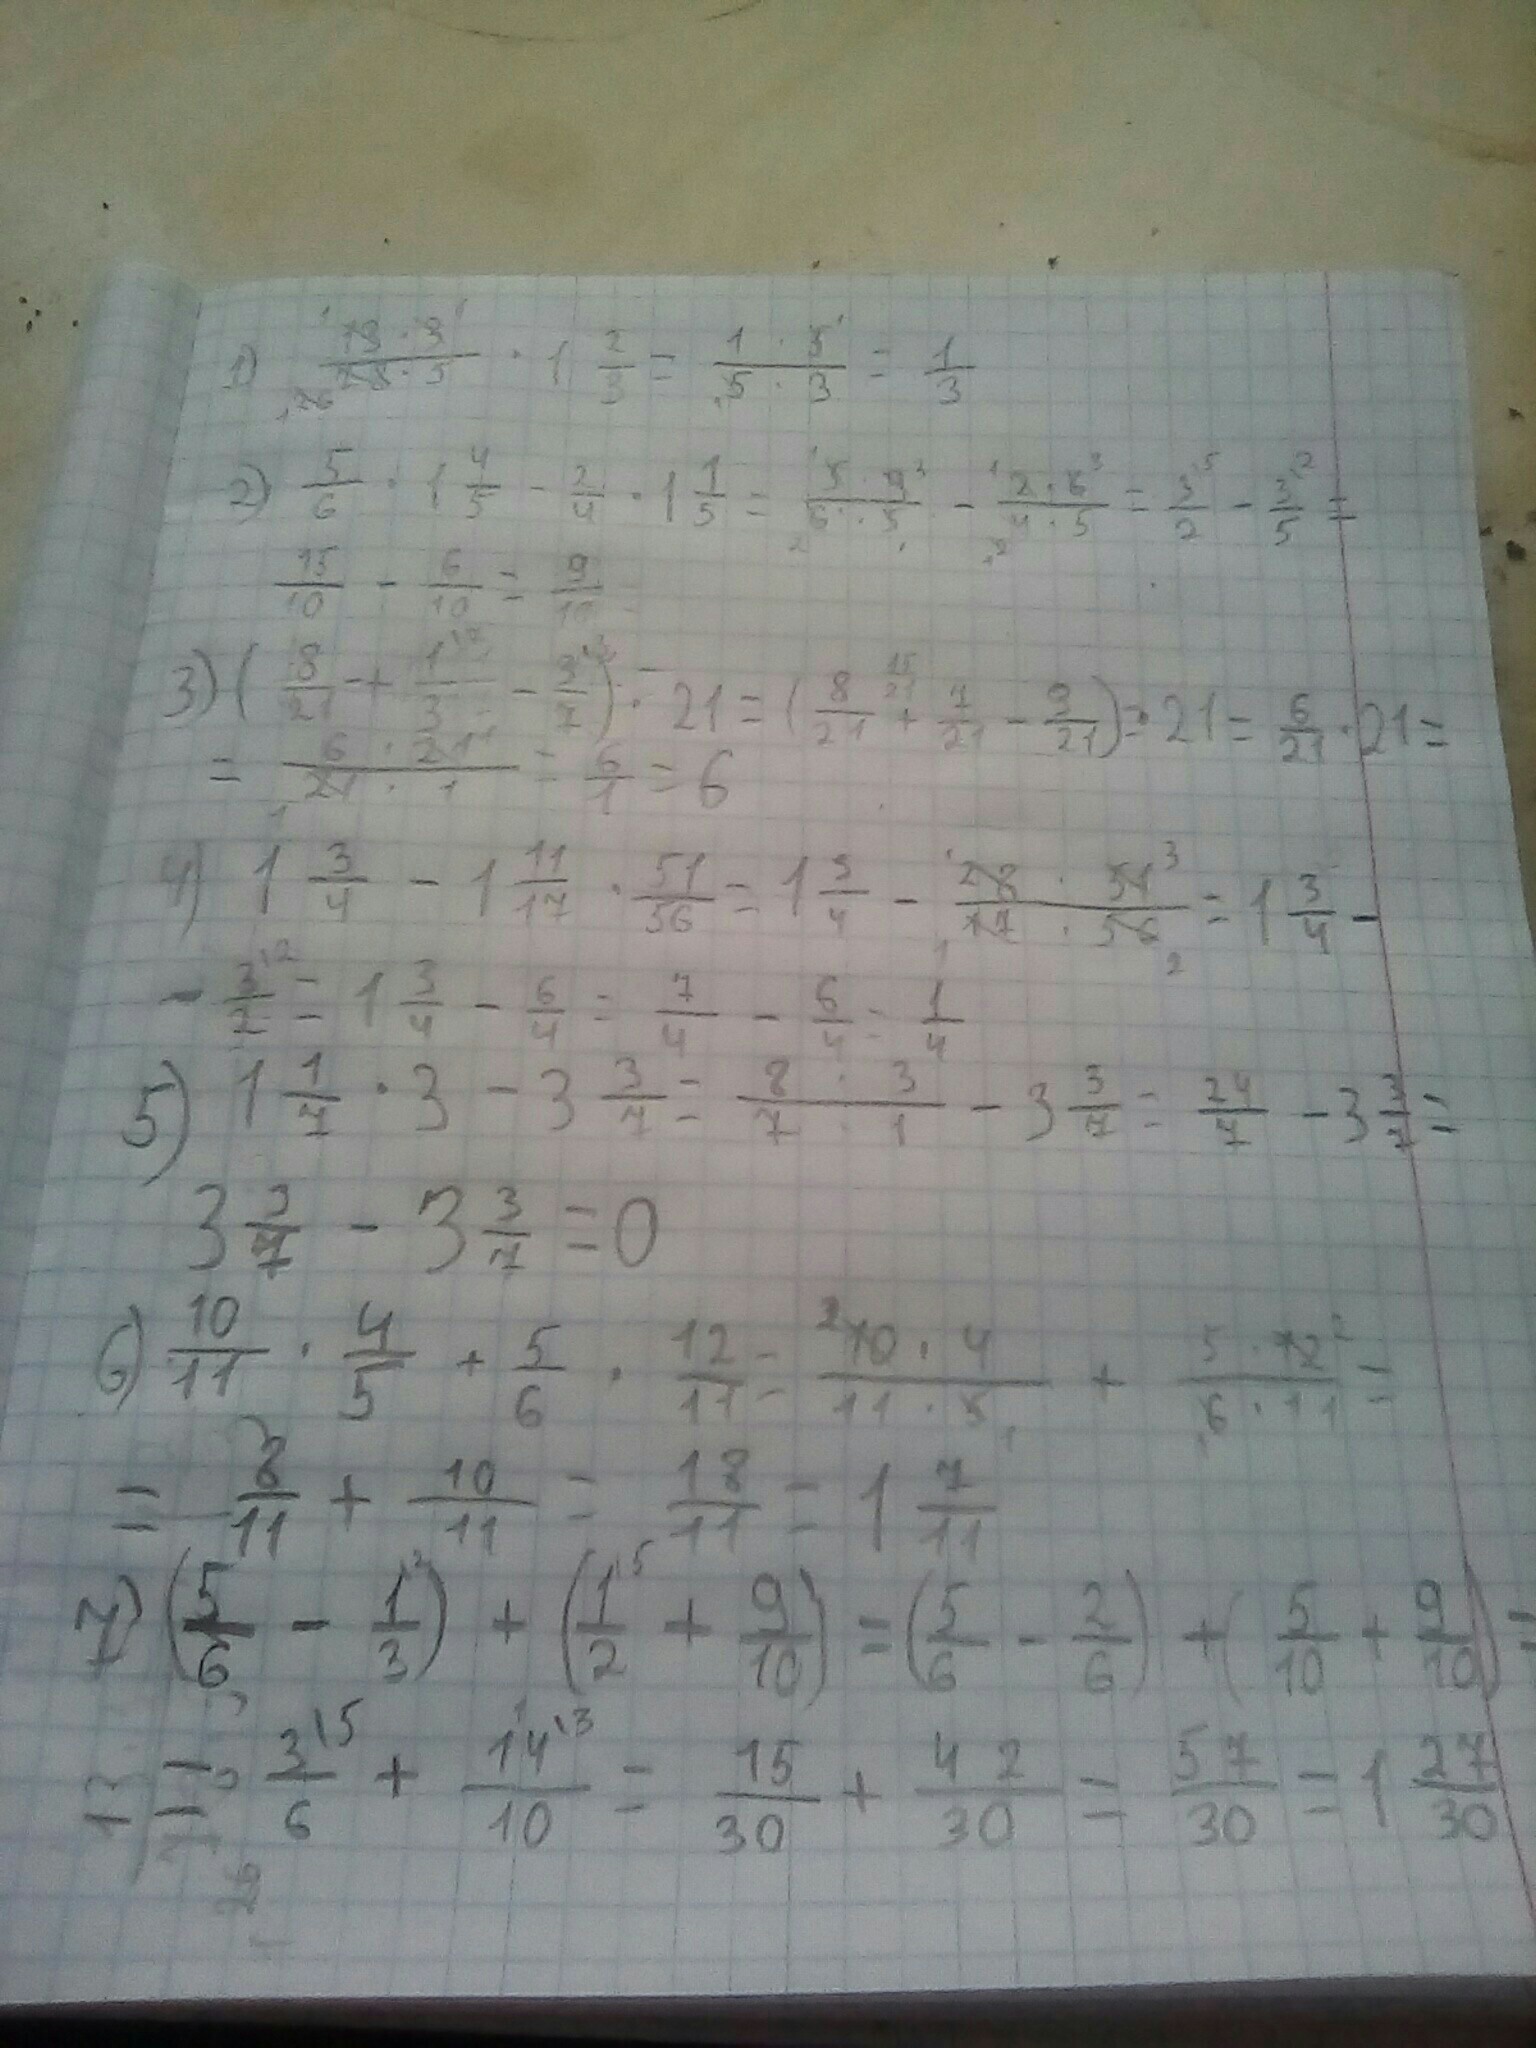 1) 13·3/28·5 · 1 2/3 = 1·5/5·3 = 1/3
2) 5/6 · 1 4/5 - 2/4 · 1 1/5 = 5·9/6·5 - 2·6/4·5 = 3/2 - 3/5 =
15/10 - 6/10 = 9/10
3) (8/21 + 1/3 - 3/7) · 21 = (8/21 + 7/21 - 9/21) · 21 = 6/21 · 21 =
= 6·21/21·1 = 6/1 = 6
4) 1 3/4 - 1 11/17 · 51/56 = 1 3/4 - 28·51/17·56 = 1 3/4 -
- 3/2 = 1 3/4 - 6/4 = 7/4 - 6/4 = 1/4
5) 1 1/7 · 3 - 3 3/7 = 8·3/7·1 - 3 3/7 = 24/7 - 3 3/7 =
3 3/7 - 3 3/7 = 0
6) 10/11 · 4/5 + 5/6 · 12/11 = 10·4/11·5 + 5·12/6·11 =
= 8/11 + 10/11 = 18/11 = 1 7/11
7) (5/6 - 1/3) + (1/2 + 9/10) = (5/6 - 2/6) + (5/10 + 9/10) =
= 3/6 + 14/10 = 15/30 + 42/30 = 57/30 = 1 27/30